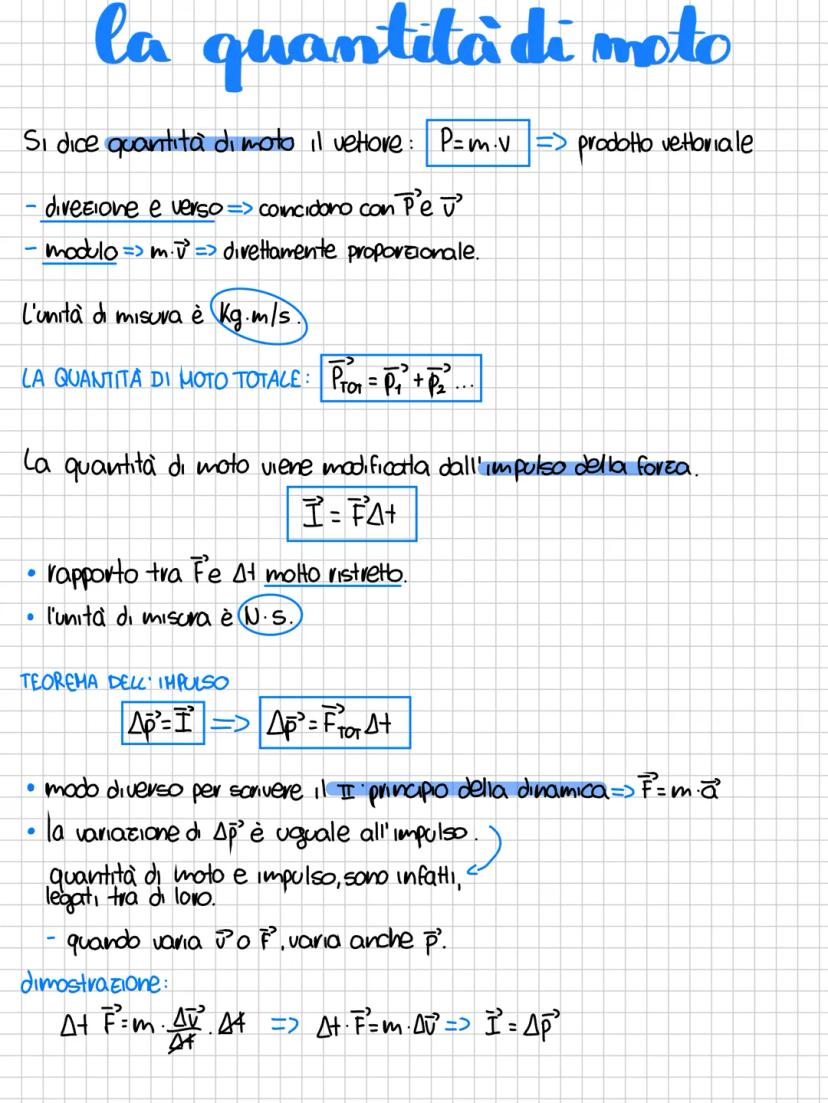 la quantità di moto
Si dice quantità di moto il vettore: P=m·v => prodotto vettoriale
- direzione e verso => coincidono con P⃗ e v⃗
- modulo => m·v⃗ => direttamente proporzionale.
L'unità di misura è Kg·m/s.
LA QUANTITÀ DI MOTO TOTALE: P⃗TOT = p⃗1 + p⃗2 ...
La quantità di moto viene modificata dall'impulso della forza.
I⃗ = F⃗Δt
• rapporto tra F⃗ e Δt molto ristretto.
• l'unità di misura è N·s.
TEOREMA DELL'IMPULSO
Δp⃗=I⃗ => Δp⃗=F⃗TOT Δt
• modo diverso per scrivere il II° principio della dinamica => F⃗=m·a⃗
• la variazione di Δp⃗ è uguale all'impulso.
quantità di moto e impulso, sono infatti,
legati tra di loro.
- quando varia v⃗ o F⃗, varia anche p⃗.
dimostrazione:
Δt F⃗=m·Δv⃗/Δt·Δt => Δt·F⃗=m·Δv⃗ => I⃗=Δp⃗